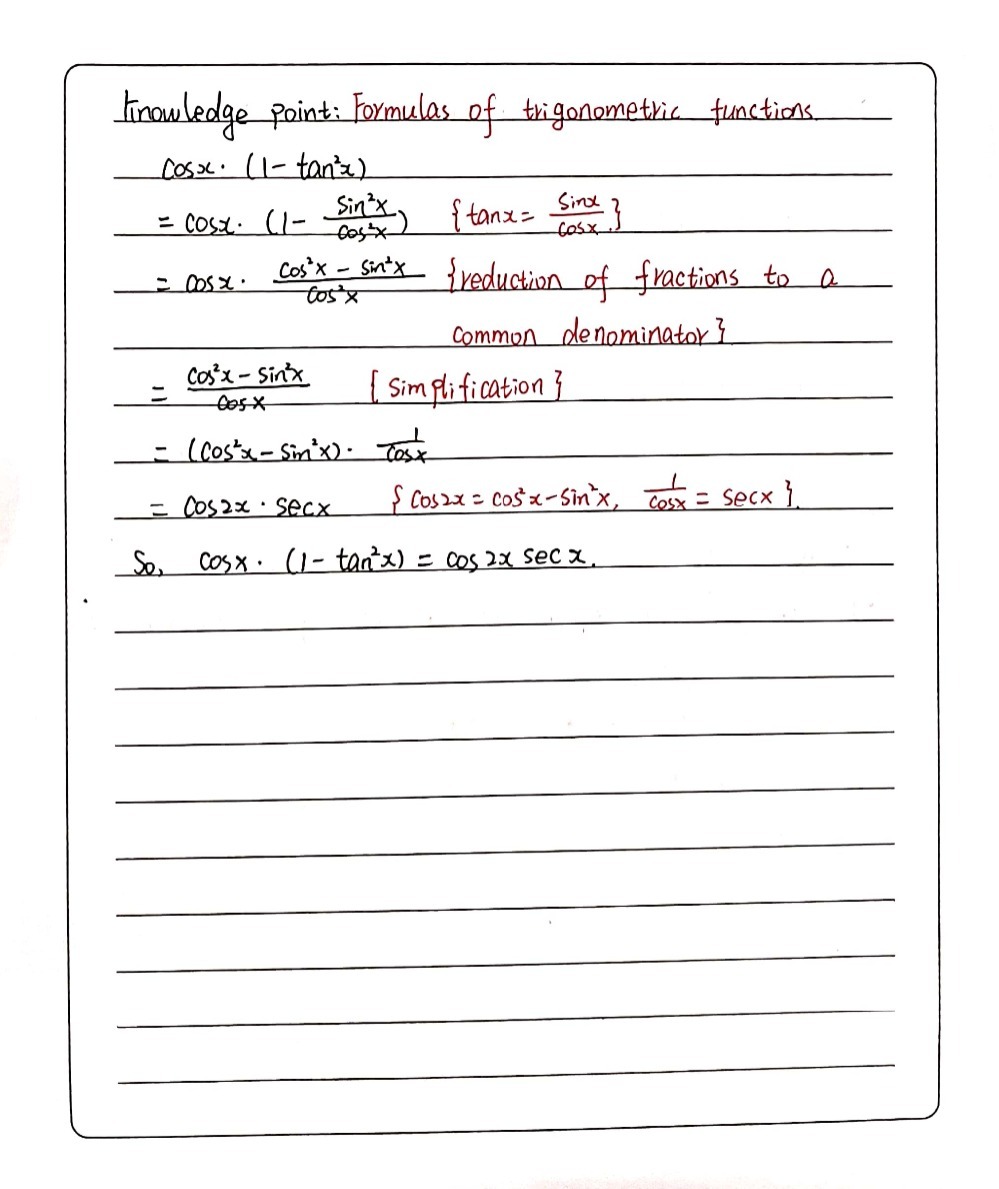 Knowledge point: Formulas of trigonometric functions
cosx · (1 - tan²x)
= cosx · (1 - sin²x/cos²x) {tanx = sinx/cosx.}
= cosx · (cos²x - sin²x)/cos²x {reduction of fractions to a
common denominator}
= (cos²x - sin²x)/cosx {simplification}
= (cos²x - sin²x) · 1/cosx
= cos2x · secx {cos2x = cos²x - sin²x, 1/cosx = secx}.
So, cosx · (1 - tan²x) = cos 2x sec x.